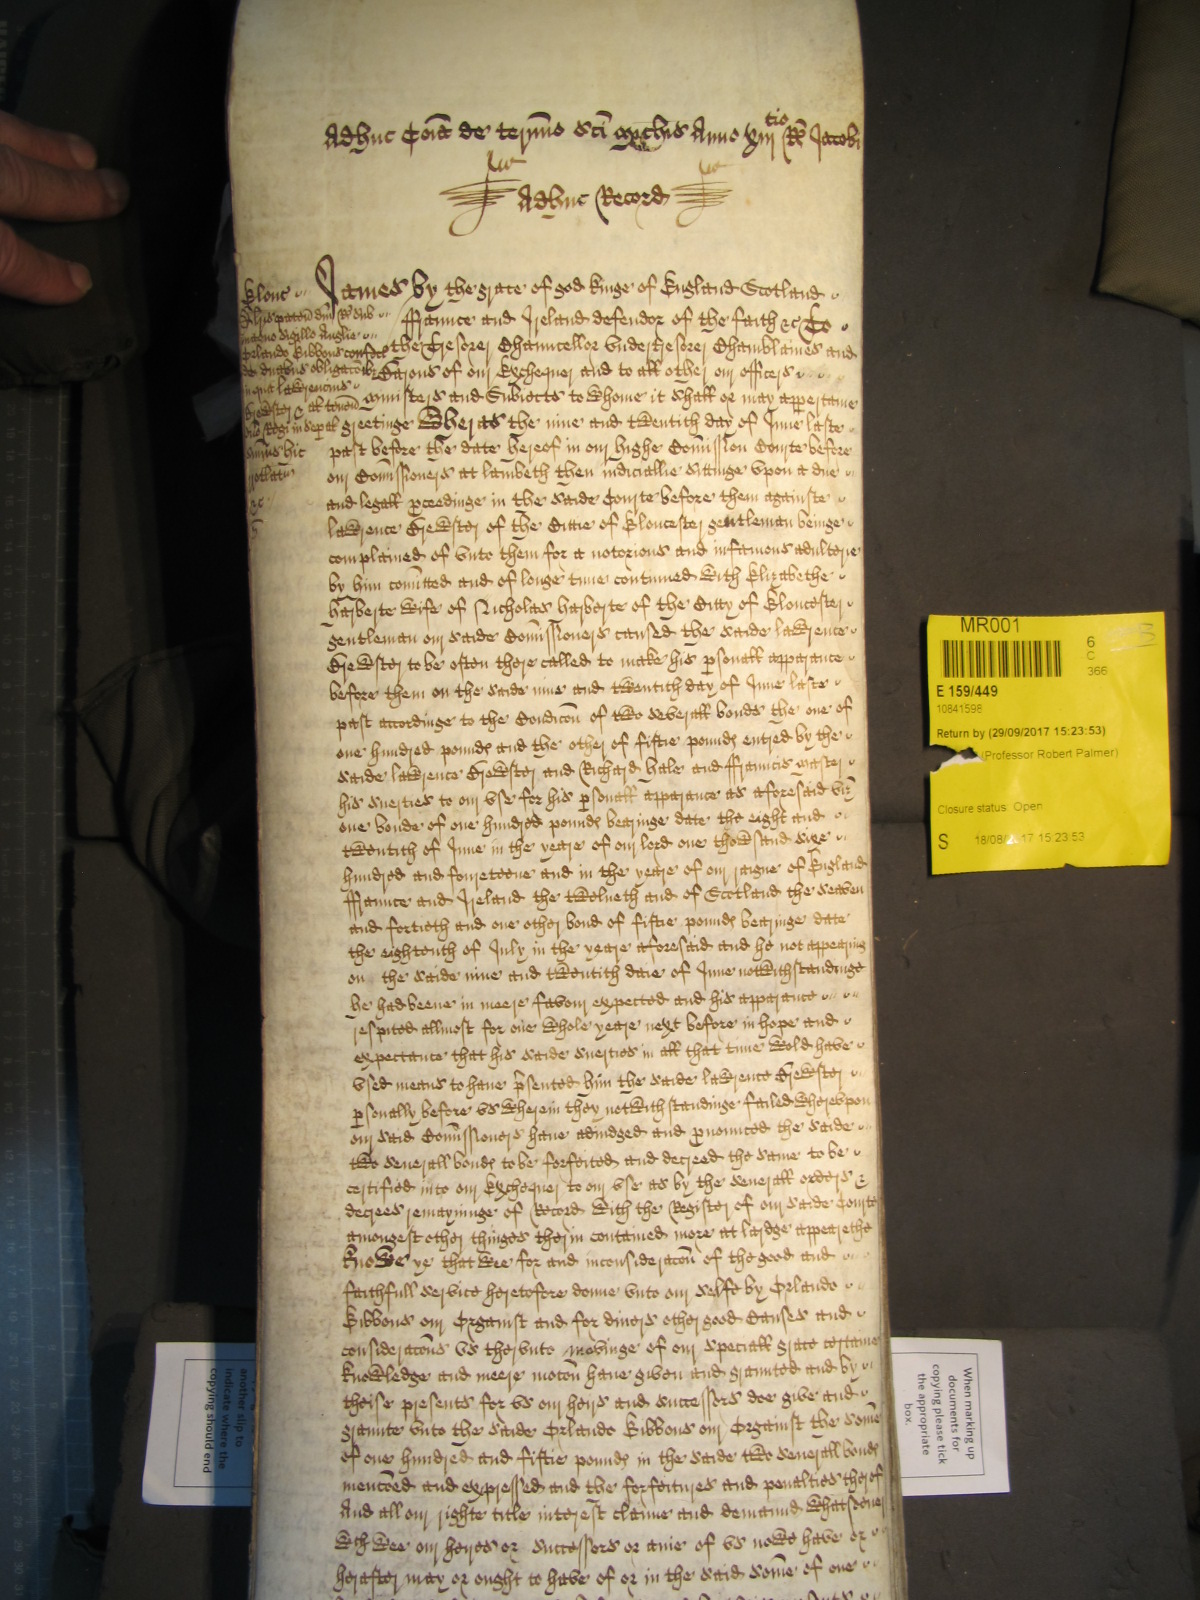 Adhuc Coia de termino sci Michis Anno xiii tio R Rs Jacobi
Adhuc Record
Glouc
James by the grace of god kinge of England Scotland
ffraunce and Ireland defendor of the faith &c To
the Tresorer Chauncellor Undertresorer Chamblaines and
Barons of our Exchequer and to all other our officers
ministers and Subiects to whome it shall or may appertaine
greetinge Wheras the nine and twentith day of June laste
past before the date hereof in our highe Comission Courte before
our Comissioners at lambeth then iudiciallie sittinge upon a due
and legall proceedinge in the saide Courte before them againste
lawrence Brewster of the Cittie of Gloucester gentleman beinge
complained of unto them for a notorious and infamous adulterie
by him comitted and of longe time continued with Elizabethe
harberte wife of Nicholas harberte of the Citty of Gloucester
gentleman our saide Comissioners caused the saide lawrence
Brewster to be often there called to make his psonall apparance
before them on the saide nine and twentith day of June laste
past accordinge to the Condicon of two severall bonds the one of
one hundred pounds and the other of fiftie pounds entred by the
saide lawrence Brewster and Richard hale and ffrauncis
his suerties to our use for his psonall apparance as aforesaid viz
one bonde of one hundred pounds bearinge date the eight and
twentith of June in the yeare of our lord one thowsand sixe
hundred and fourteene and in the yeare of our raigne of England
ffraunce and Ireland the twelueth and of Scotland the seaven
and fortieth and one other bond of fiftie pounds bearinge date
the eightenth of July in the yeare aforesaid and he not appearing
on the saide nine and twentith daie of June notwithstandinge
he had beene in meere favour expected and his apparance
respited allmost for one whole yeare next before in hope and
expectance that his saide suerties in all that time wold have
used means to have psented him the saide lawrence Brewster
psonally before us wherein they notwithstandinge failed wherupon
our said Comissioners have adiudged and pnounced the saide
two severall bonds to be forfeited and decreed the same to be
certified into our Exchequer to our use as by the severall orders &
decrees remayninge of Record with the Register of our saide Courte
amongest other thinges therin contained more at lardge appearethe
Knowe ye that wee for and in consideracon of the good and
faithfull service heretofore donne unto our selfe by Orlando
Gibbons our Organist and for divers other good causes and
consideracons us therunto movinge of our speciall grace certaine
knowledge and meere motion have given and graunted and by
theise presents for us our heirs and successors doe give and
graunte unto the saide Orlando Gibbons our Organist the some
of one hundred and fiftie pounds in the saide two severall bonds
menconed and expressed and the forfeitures and penalties therof
And all our righte title interest claime and demaund whatsoever
wch wee our heires or successors or anie of us nowe have or
herafter may or ought to have of or in the said some of one
MR001
6
C
366
E 159/449
10841598
Return by (29/09/2017 15:23:53)
(Professor Robert Palmer)
Closure status: Open
S 18/08/2017 15:23:53
another slip to
indicate where the
copying should end
When marking up
documents for
copying please tick
the appropriate
box.